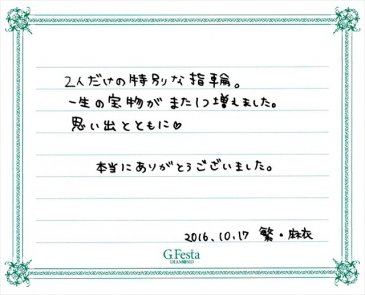 2人だけの特別な指輪。
一生の宝物がまた1つ増えました。
思い出とともに♡
本当にありがとうございました。
2016.10.17 繁・麻衣
G.Festa
DIAMOND